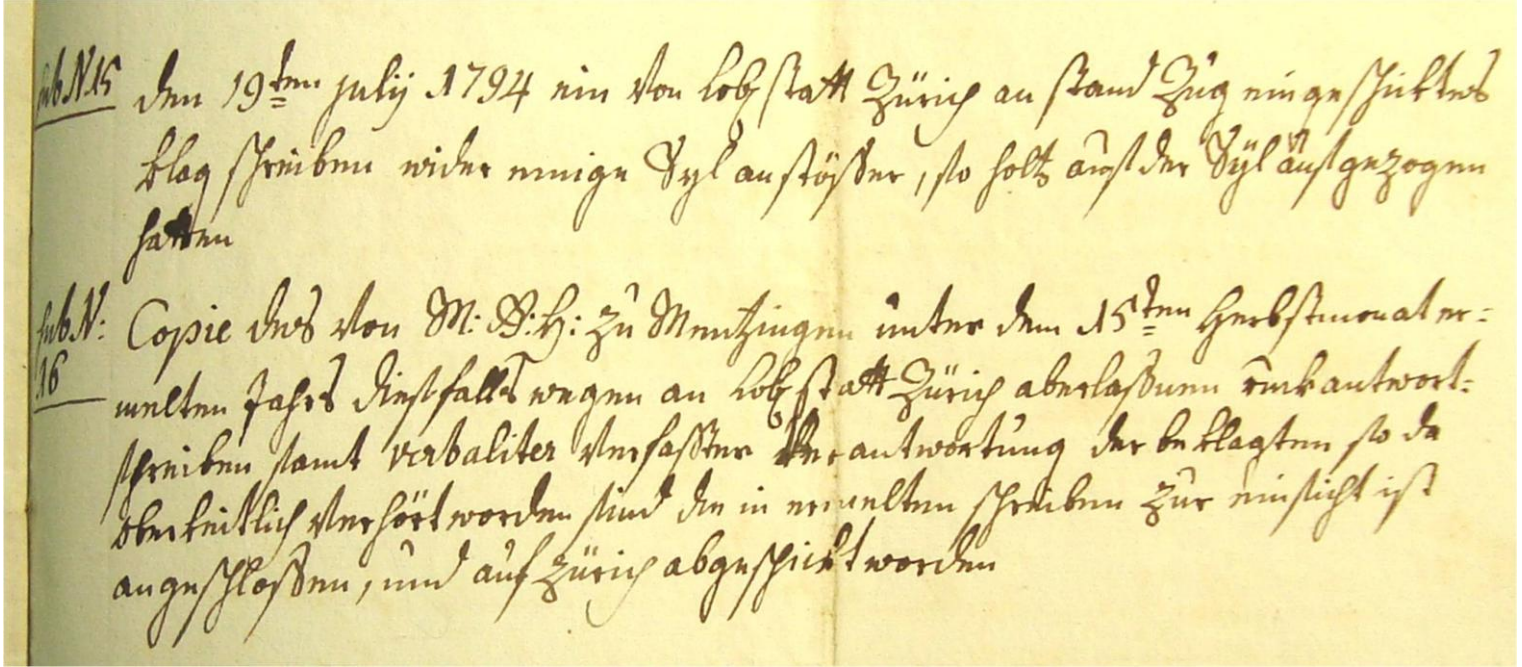 sub N 15 den 19ten julÿ 1794 ein von lobl statt Zürich an stand Zug eingeschicktes
klag schreiben wider einige Syl anstösser, so holtz aus der Syl ausgezogen
hatten
sub N: Copie des von M: G: H: zu Mentzingen unter dem 15ten Herbstmonat er=
16 melten Jahrs diesfalls wegen an lobl statt Zürich aberlassnen ruckantwort=
schreiben samt verbaliter verfasster verantwortung der beklagten so da
oberkeitlich verhört worden sind die in ermelten schreiben zur einsicht ist
angeschlossen, und auf Zürich abgeschickt worden